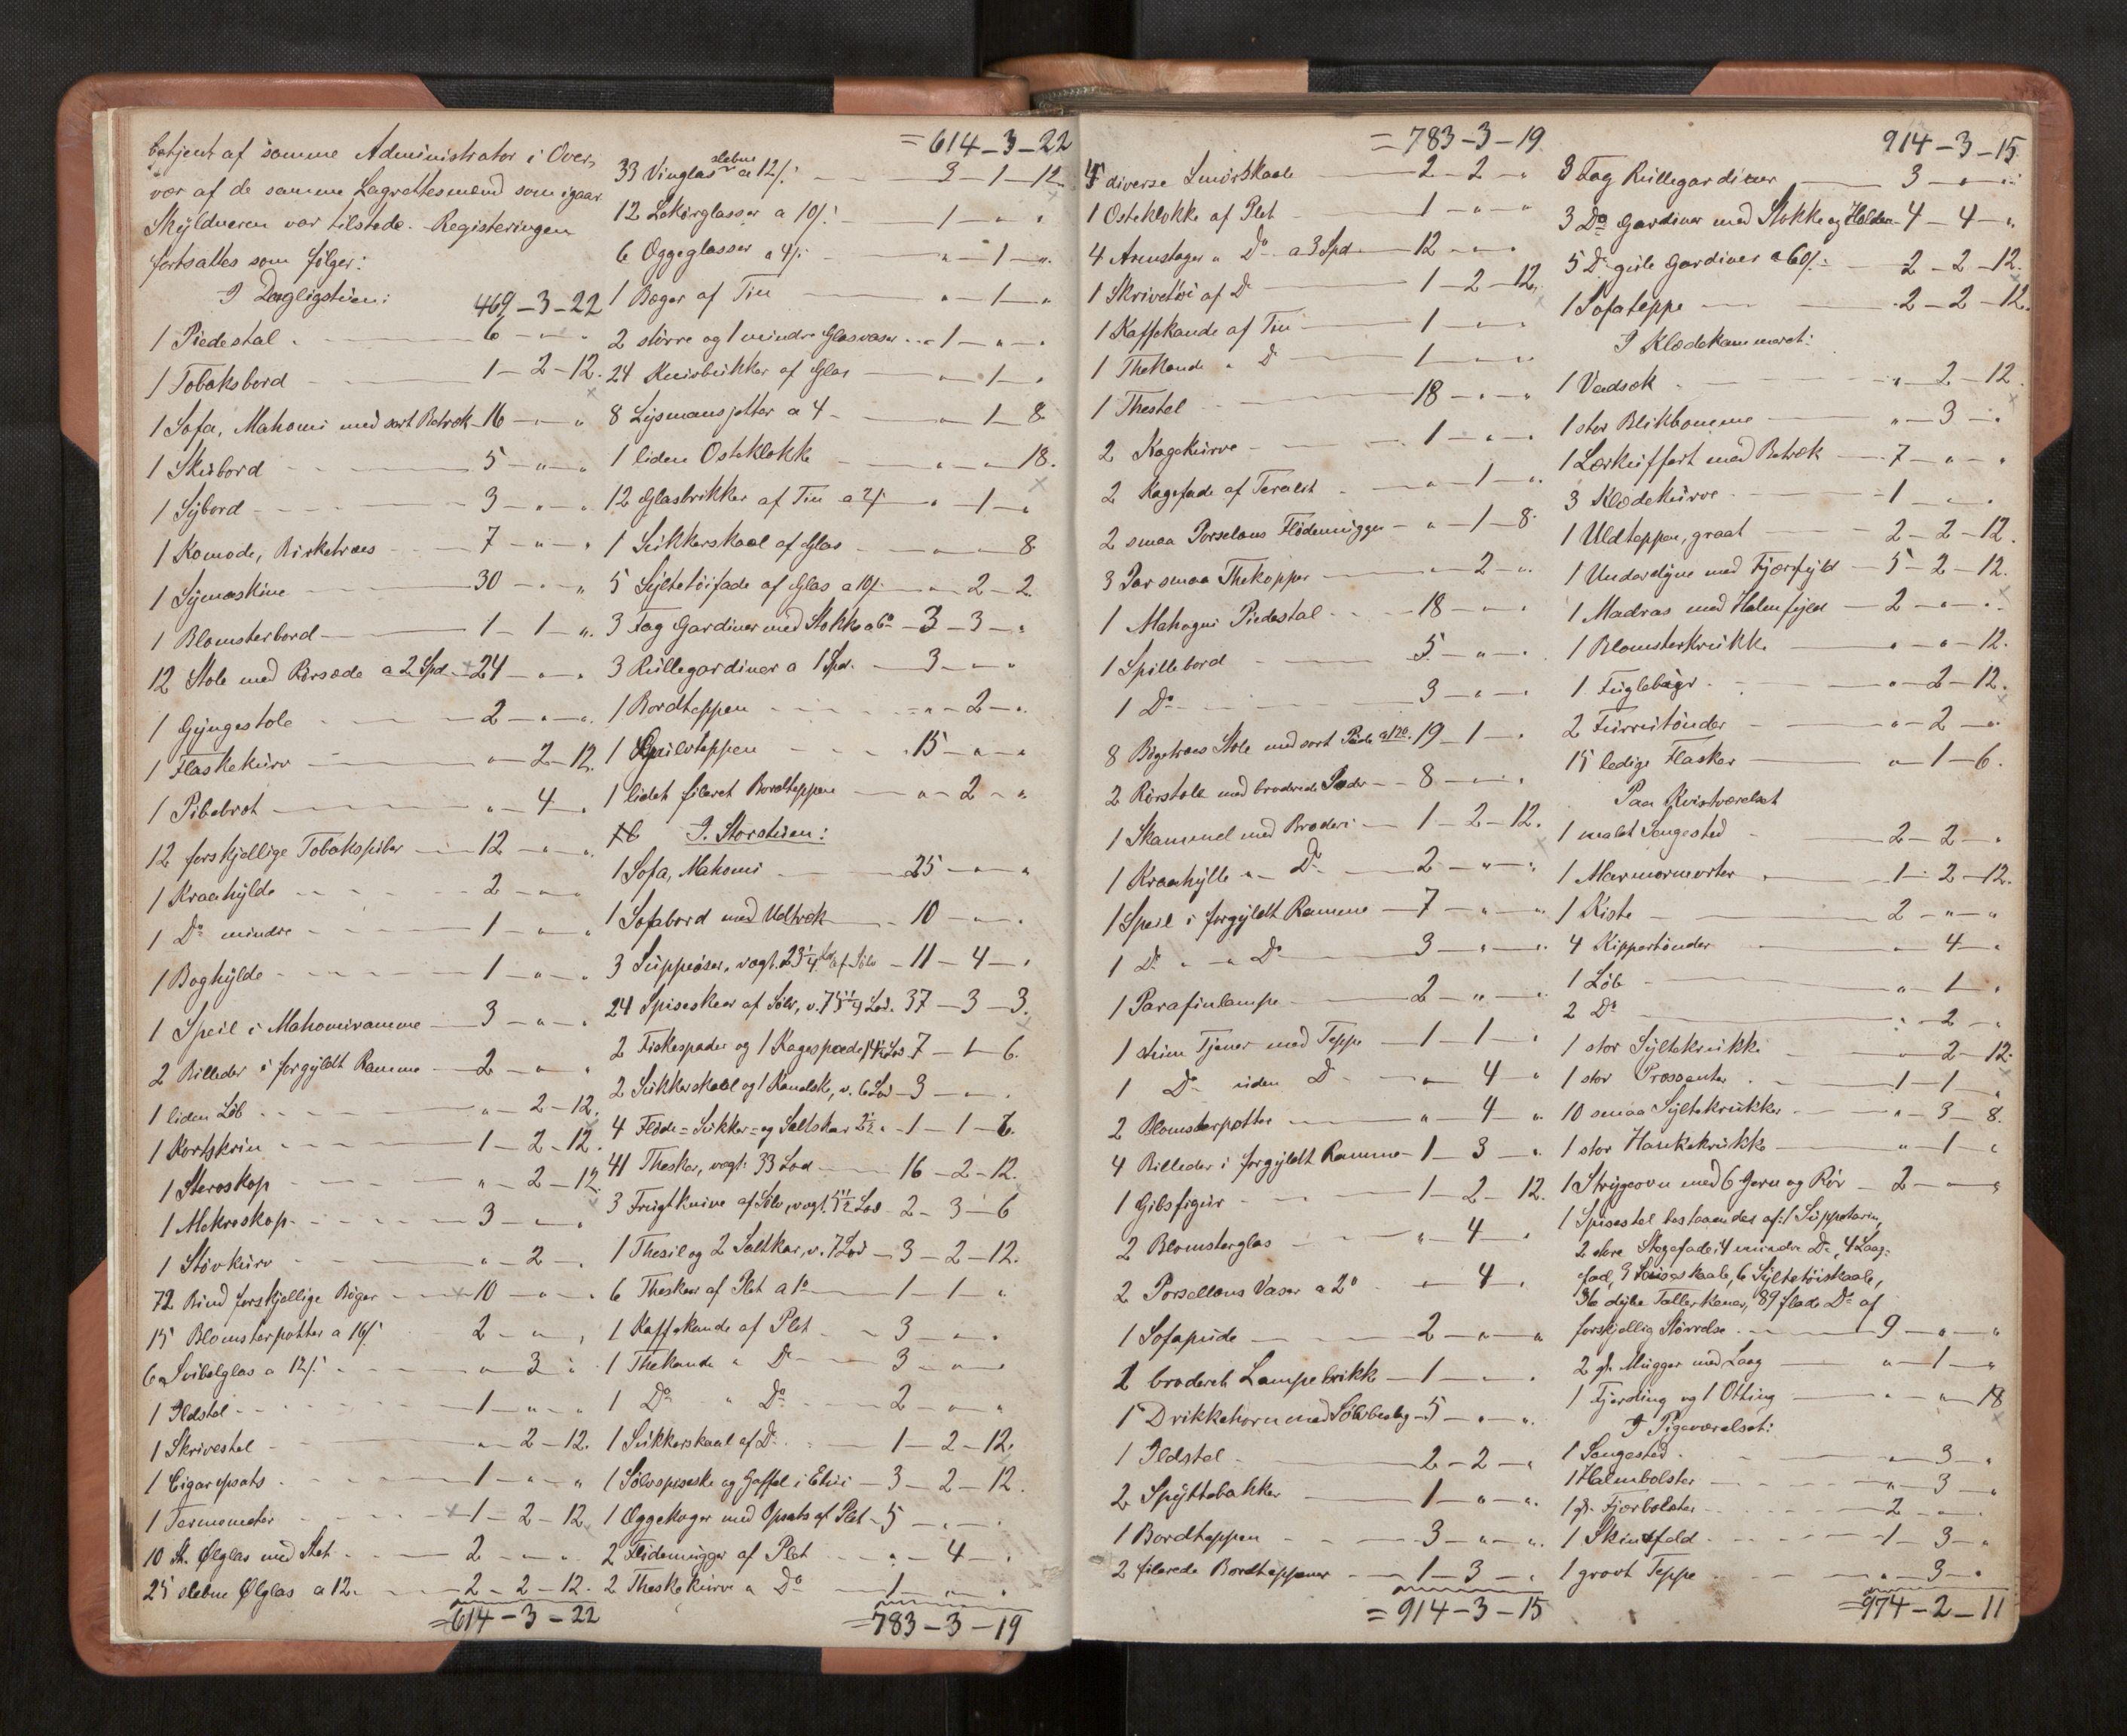 betjent af samme Administrator i Over,
vær af de samme Lagrettesmænd som igaar.
Skyldneren var tilstede. Registeringen
fortsattes som følger:
I Dagligstuen:
469-3-22
1 Piedestal 6 - " - "
1 Tobaksbord 1-2-12.
1 Sofa, Mahoni med sort Betræk 16 - " - "
1 Skibord 5 - " - "
1 Sybord 3 - " - "
1 Komode, Birketræs 7 - " - "
1 Symaskine 30 - " - "
1 Blomsterbord 1-1-"
12 Stole med Rørsæde a 2 Spd. 24 - " - "
1 Gyngestole 2 - " - "
1 Flaskekurv " - 2-12.
1 Pibebret " - 4 - "
12 forskjellige Tobakspiber 12 - " - "
1 Kraahylde 2 - " - "
1 Do mindre 1 - " - "
1 Boghylde 1 - " - "
1 Speil i Mahoniramme 3 - " - "
2 Billeder i forgyldt Ramme 2 - " - "
1 liden Løb " - 2-12.
1 Kortskrin 1-2-12.
1 Steroskop " - 2-12.
1 Mekroskop 3 - " - "
1 Støvkurv " - 2 - "
72 Bind forskjellige Bøger 10 - " - "
15 Blomsterpotter a 16/. 2 - " - "
6 Svibelglas a 12/. " - 3 - "
1 Ildstel 1 - " - "
1 Skrivestel " - 2-12.
1 Cigaropsats 1 - " - "
1 Termometer 1-2-12.
10 St. Ølglas med Stet 2 - " - "
25 slebne Ølglas a 12. 2-2-12.
=614-3-22
=614-3-22
33 Vinglas slebne a 12/. 3-1-12.
12 Lekørglasser a 10/. 1 - " - "
6 Æggeglasser a 4/. " - 1 - "
1 Bæger af Tin " - 1 - "
2 større og 1 mindre Glasvaser 1 - " - "
24 Knivbrikker af Glas " - 1 - "
8 Lysmansjetter a 4 " - 1-8.
1 liden Osteklokke " - " - 18.
12 Glasbrikker af Tin a 2/. " - 1 - "
1 Sukkerskaal af Glas " - " - 8.
5 Syltetøifade af Glas a 10/. " - 2-2.
3 Fag Gardiner med Stokke a 6o 3-3-"
3 Rullegardiner a 1 Spd. 3 - " - "
1 Bordteppen " - 2 - "
1 Gulvteppen 15 - " - "
1 lidet fileret Bordteppen " - 2 - "
I. Storstuen:
1 Sofa, Mahoni 25 - " - "
1 Sofabord med Udtræk 10 - " - "
3 Suppeøser, vægt. 23 1/4 Lod af Sølv 11-4-"
24 Spiseskeer af Sølv, v. 75 1/4 Lod. 37-3-3.
2 Fiskespader og 1 Kagespade 14 1/2 Lod 7-1-6.
2 Sukkerskeel og 1 Kanelske, v. 6 Lod 3 - " - "
4 Fløde= Sukker= og Saltskar 2 1/2 " 1-1-6.
41 Theskeer, vægt: 33 Lod 16-2-12.
3 Frugtknive af Sølv, vægt. 5 1/2 Lod 2-3-6
1 Thesil og 2 Saltkar, v. 7 Lod 3-2-12.
6 Theskeer af Plet a 1o 1-1-"
1 Kaffekande af Plet 3 - " - "
1 Thekande " Do 3 - " - "
1 Do " Do 2 - " - "
1 Sukkerskaal af Do 1-2-12.
1 Sølvspiseske og Gaffel i Etui 3-2-12.
1 Æggekoger med Opsats af Plet 5 - " - "
2 Flødemugger af Plet " - 4 - "
2 Theskekurve " Do 1 - " - "
=783-3-19
=783-3-19
5 diverse Smørskaale 2-2-"
1 Osteklokke af Plet 1 - " - "
4 Armstager " Do a 3 Spd 12 - " - "
1 Skrivetøi af Do 1-2-12.
1 Kaffekande af Tin 1 - " - "
1 Thekande " Do 1 - " - "
1 Thestel 18 - " - "
2 Kagekurve 1 - " - "
2 Kagefade af Teralit " - 1 - "
2 smaa Porselæns Flødemugger " - 1-8.
3 Par smaa Thekopper " - 2 - "
1 Mahogni Piedestal 18 - " - "
1 Spillebord 5 - " - "
1 Do 3 - " - "
8 Bøgetræs Stole med sort Pude a 12o. 19-1-"
2 Rørstole med broderede Puder 8 - " - "
1 Skammel med Broderi 1-2-12.
1 Kraahylle " Do 2 - " - "
1 Speil i forgyldt Ramme 7 - " - "
1 Do " " Do 3 - " - "
1 Parafinlampe 2 - " - "
1 stum Tjener med Teppe 1-1-"
1 Do uden Do " - 4 - "
2 Blomsterpotter " - 4 - "
4 Billeder i forgyldt Ramme 1-3-"
1 Gibsfigur 1-2-12.
2 Blomsterglas " - 4 - "
2 Porsellæns Vaser a 2o " - 4 - "
1 Sofapude 2 - " - "
2 broderet Lampebrikk 1 - " - "
1 Drikkehorn med Sølvbeslag 5 - " - "
1 Ildstel 2-2-"
2 Spyttebakker 1 - " - "
1 Bordteppen 3 - " - "
2 filerede Bordteppener 1-3-"
=914-3-15
914-3-15
3 Fag Rullegardiner 3 - " - "
3 Do Gardiner med Stokke og Holder 4-4-"
5 Do gule Gardiner a 60/. 2-2-12.
1 Sofateppe 2-2-12.
I Klædekammeret:
1 Vadsæk " - 2-12.
1 stor Blikbomme " - 3 - "
1 Lærkuffert med Betræk 7 - " - "
3 Klædekurve 1 - " - "
1 Uldteppen, graat 2-2-12.
1 Underdyne med Fjærfyld 5-2-12.
1 Madras med Halmfyld 2 - " - "
1 Blomsterkrukke " - " - 12.
1 Fuglebuer " - 2-12.
2 Furrutønder " - 2 - "
15 ledige Flasker " - 1-6.
Paa Kvistværelset
1 malet Sengested 2-2-"
1 Marmormorter 1-2-12.
1 Kiste 2 - " - "
4 Kippertønder " - 4 - "
1 Løb " - 1 - "
2 Do " - 2 - "
1 stor Syltekrukke " - 2-12.
1 stor Prosenter 1-1-"
10 smaa Syltekrukker " - 3-8.
1 stor Hankekrukke " - 1 - "
1 Strygeovn med 6 Jern og Rør 2 - " - "
1 Spisestel bestaaendes af: 1 Suppeterin,
2 store Stegefade, 4 mindre Do, 4 Laag-
fad, 3 Saucskaale, 6 Syltetøiskaale,
36 dybe Tallerkener, 89 flade Do af
forskjellig Størrelse 9 - " - "
2 gl. Mugger med Laag " - 1 - "
1 Fjerding og 1 Otting " - " - 18
I Pigeværelset:
1 Sengested " - 3 - "
1 Halmbolster " - 3 - "
1 gl. Fjærbolster 2 - " - "
1 Skindfeld 1-3-"
1 grovt Teppe " - 3 - "
=974-2-11